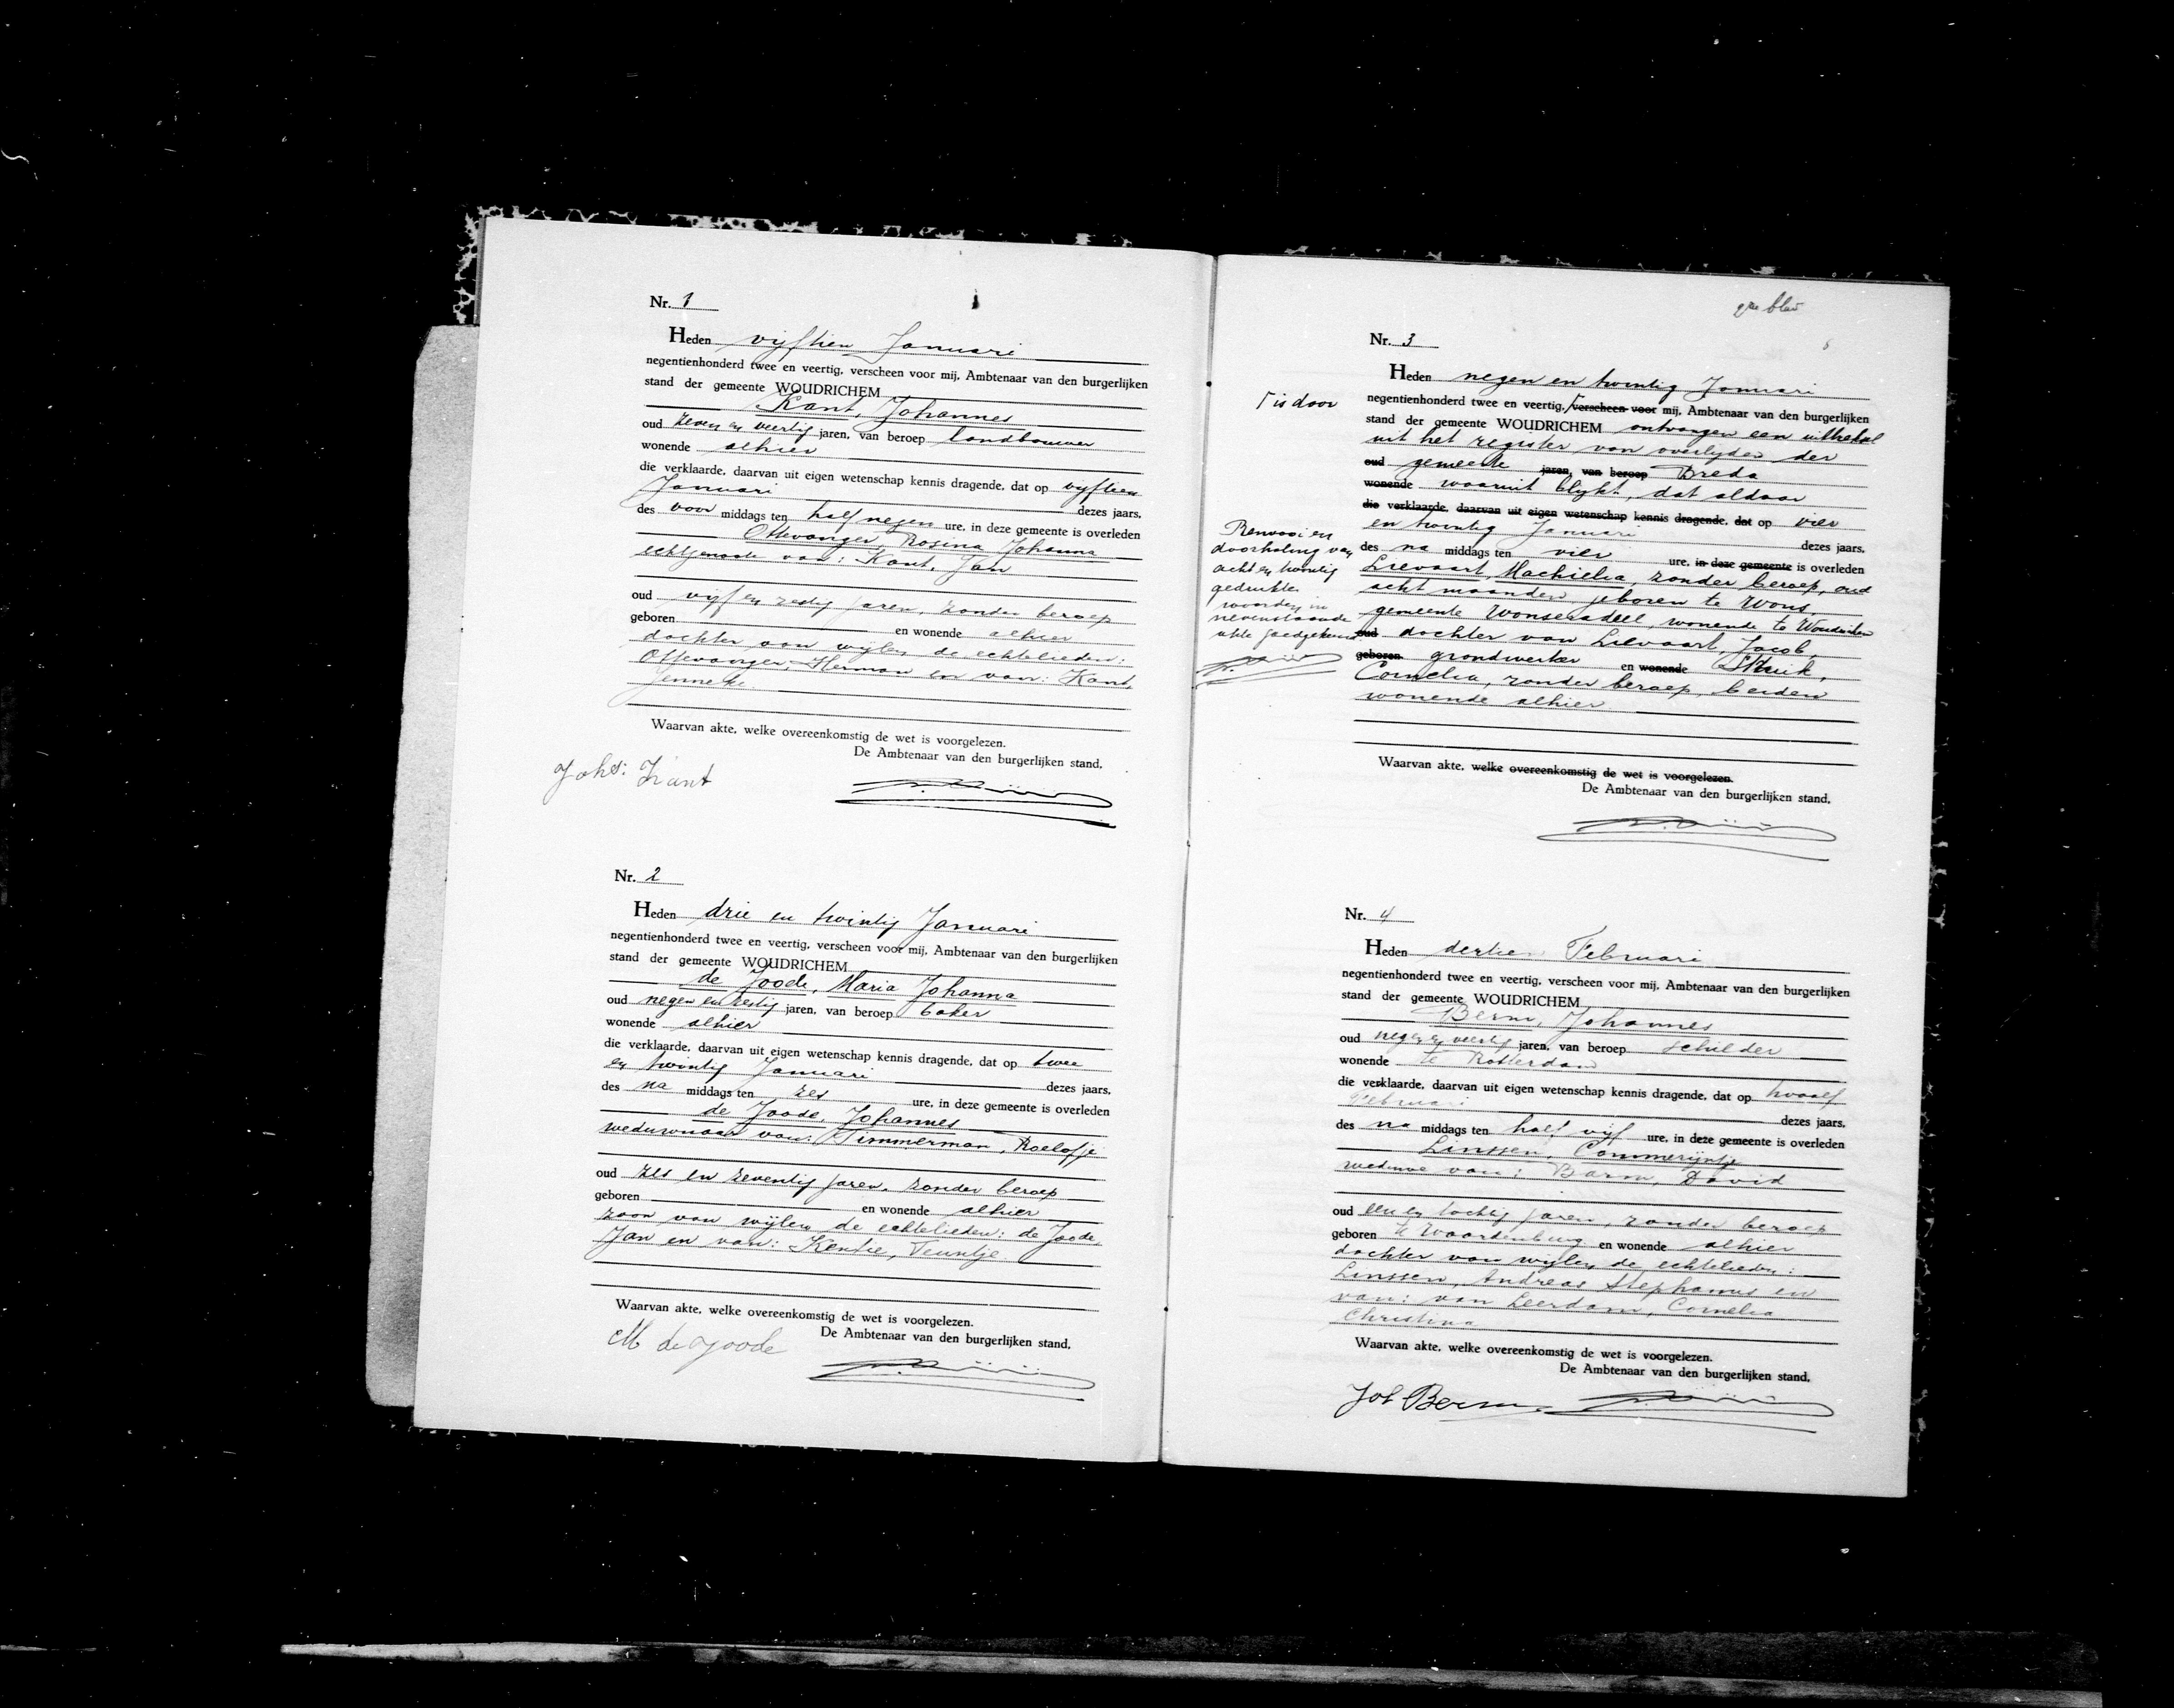 Nr. 1
Heden vijftien Januari
negentienhonderd twee en veertig, verscheen voor mij, Ambtenaar van den burgerlijken
stand der gemeente WOUDRICHEM
Kant, Johannes
oud zeven en veertig jaren, van beroep landbouwer
wonende alhier
die verklaarde, daarvan uit eigen wetenschap kennis dragende, dat op vijftien
Januari dezes jaars,
des voor middags ten half negen ure, in deze gemeente is overleden
Ottevanger, Rosina Johanna
echtgenoote van: Kant, Jan
oud vijf en zestig jaren, zonder beroep
geboren en wonende alhier
dochter van wijlen de echtelieden:
Ottevanger, Herman en van: Kant,
Jenneke
Waarvan akte, welke overeenkomstig de wet is voorgelezen.
De Ambtenaar van den burgerlijken stand,
Johs: Kant
Nr. 2
Heden drie en twintig Januari
negentienhonderd twee en veertig, verscheen voor mij, Ambtenaar van den burgerlijken
stand der gemeente WOUDRICHEM
de Joode, Maria Johanna
oud negen en zestig jaren, van beroep baker
wonende alhier
die verklaarde, daarvan uit eigen wetenschap kennis dragende, dat op twee
en twintig Januari dezes jaars,
des na middags ten zes ure, in deze gemeente is overleden
de Joode, Johannes
weduwnaar van: Timmerman, Roelofje
oud zes en zeventig jaren, zonder beroep
geboren en wonende alhier
zoon van wijlen de echtelieden: de Joode,
Jan en van: Kentie, Teuntje
Waarvan akte, welke overeenkomstig de wet is voorgelezen.
De Ambtenaar van den burgerlijken stand,
M de Joode
2de blad
Nr. 3
Heden negen en twintig Januari
negentienhonderd twee en veertig, verscheen voor mij, Ambtenaar van den burgerlijken
Γ is door
stand der gemeente WOUDRICHEM ontvangen een uittreksel
uit het register van overlijden der
oud gemeente jaren, van beroep Breda
wonende waaruit blijkt, dat aldaar
die verklaarde, daarvan uit eigen wetenschap kennis dragende, dat op vier
en twintig Januari dezes jaars,
des na middags ten vier ure, in deze gemeente is overleden
Lievaart, Machielia, zonder beroep, oud
acht maanden geboren te Wons,
gemeente Wonseradeel, wonende te Woudrichem
oud dochter van Lievaart, Jacob,
geboren grondwerker en wonende Struik,
Cornelia, zonder beroep, beiden
wonende alhier
Renvooi en
doorhaling van
acht en twintig
gedrukte
woorden in
nevenstaande
akte goedgekeurd
Waarvan akte, welke overeenkomstig de wet is voorgelezen.
De Ambtenaar van den burgerlijken stand,
Nr. 4
Heden dertien Februari
negentienhonderd twee en veertig, verscheen voor mij, Ambtenaar van den burgerlijken
stand der gemeente WOUDRICHEM
Berm, Johannes
oud negen en veertig jaren, van beroep schilder
wonende te Rotterdam
die verklaarde, daarvan uit eigen wetenschap kennis dragende, dat op twaalf
Februari dezes jaars,
des na middags ten half vijf ure, in deze gemeente is overleden
Linssen, Commerijntje
weduwe van: Barm, David
oud een en tachtig jaren, zonder beroep
geboren te Waardenburg en wonende alhier
dochter van wijlen de echtelieden:
Linssen, Andreas Stephanus en
van: van Leerdam, Cornelia
Christina
Waarvan akte, welke overeenkomstig de wet is voorgelezen.
De Ambtenaar van den burgerlijken stand,
Joh Berm